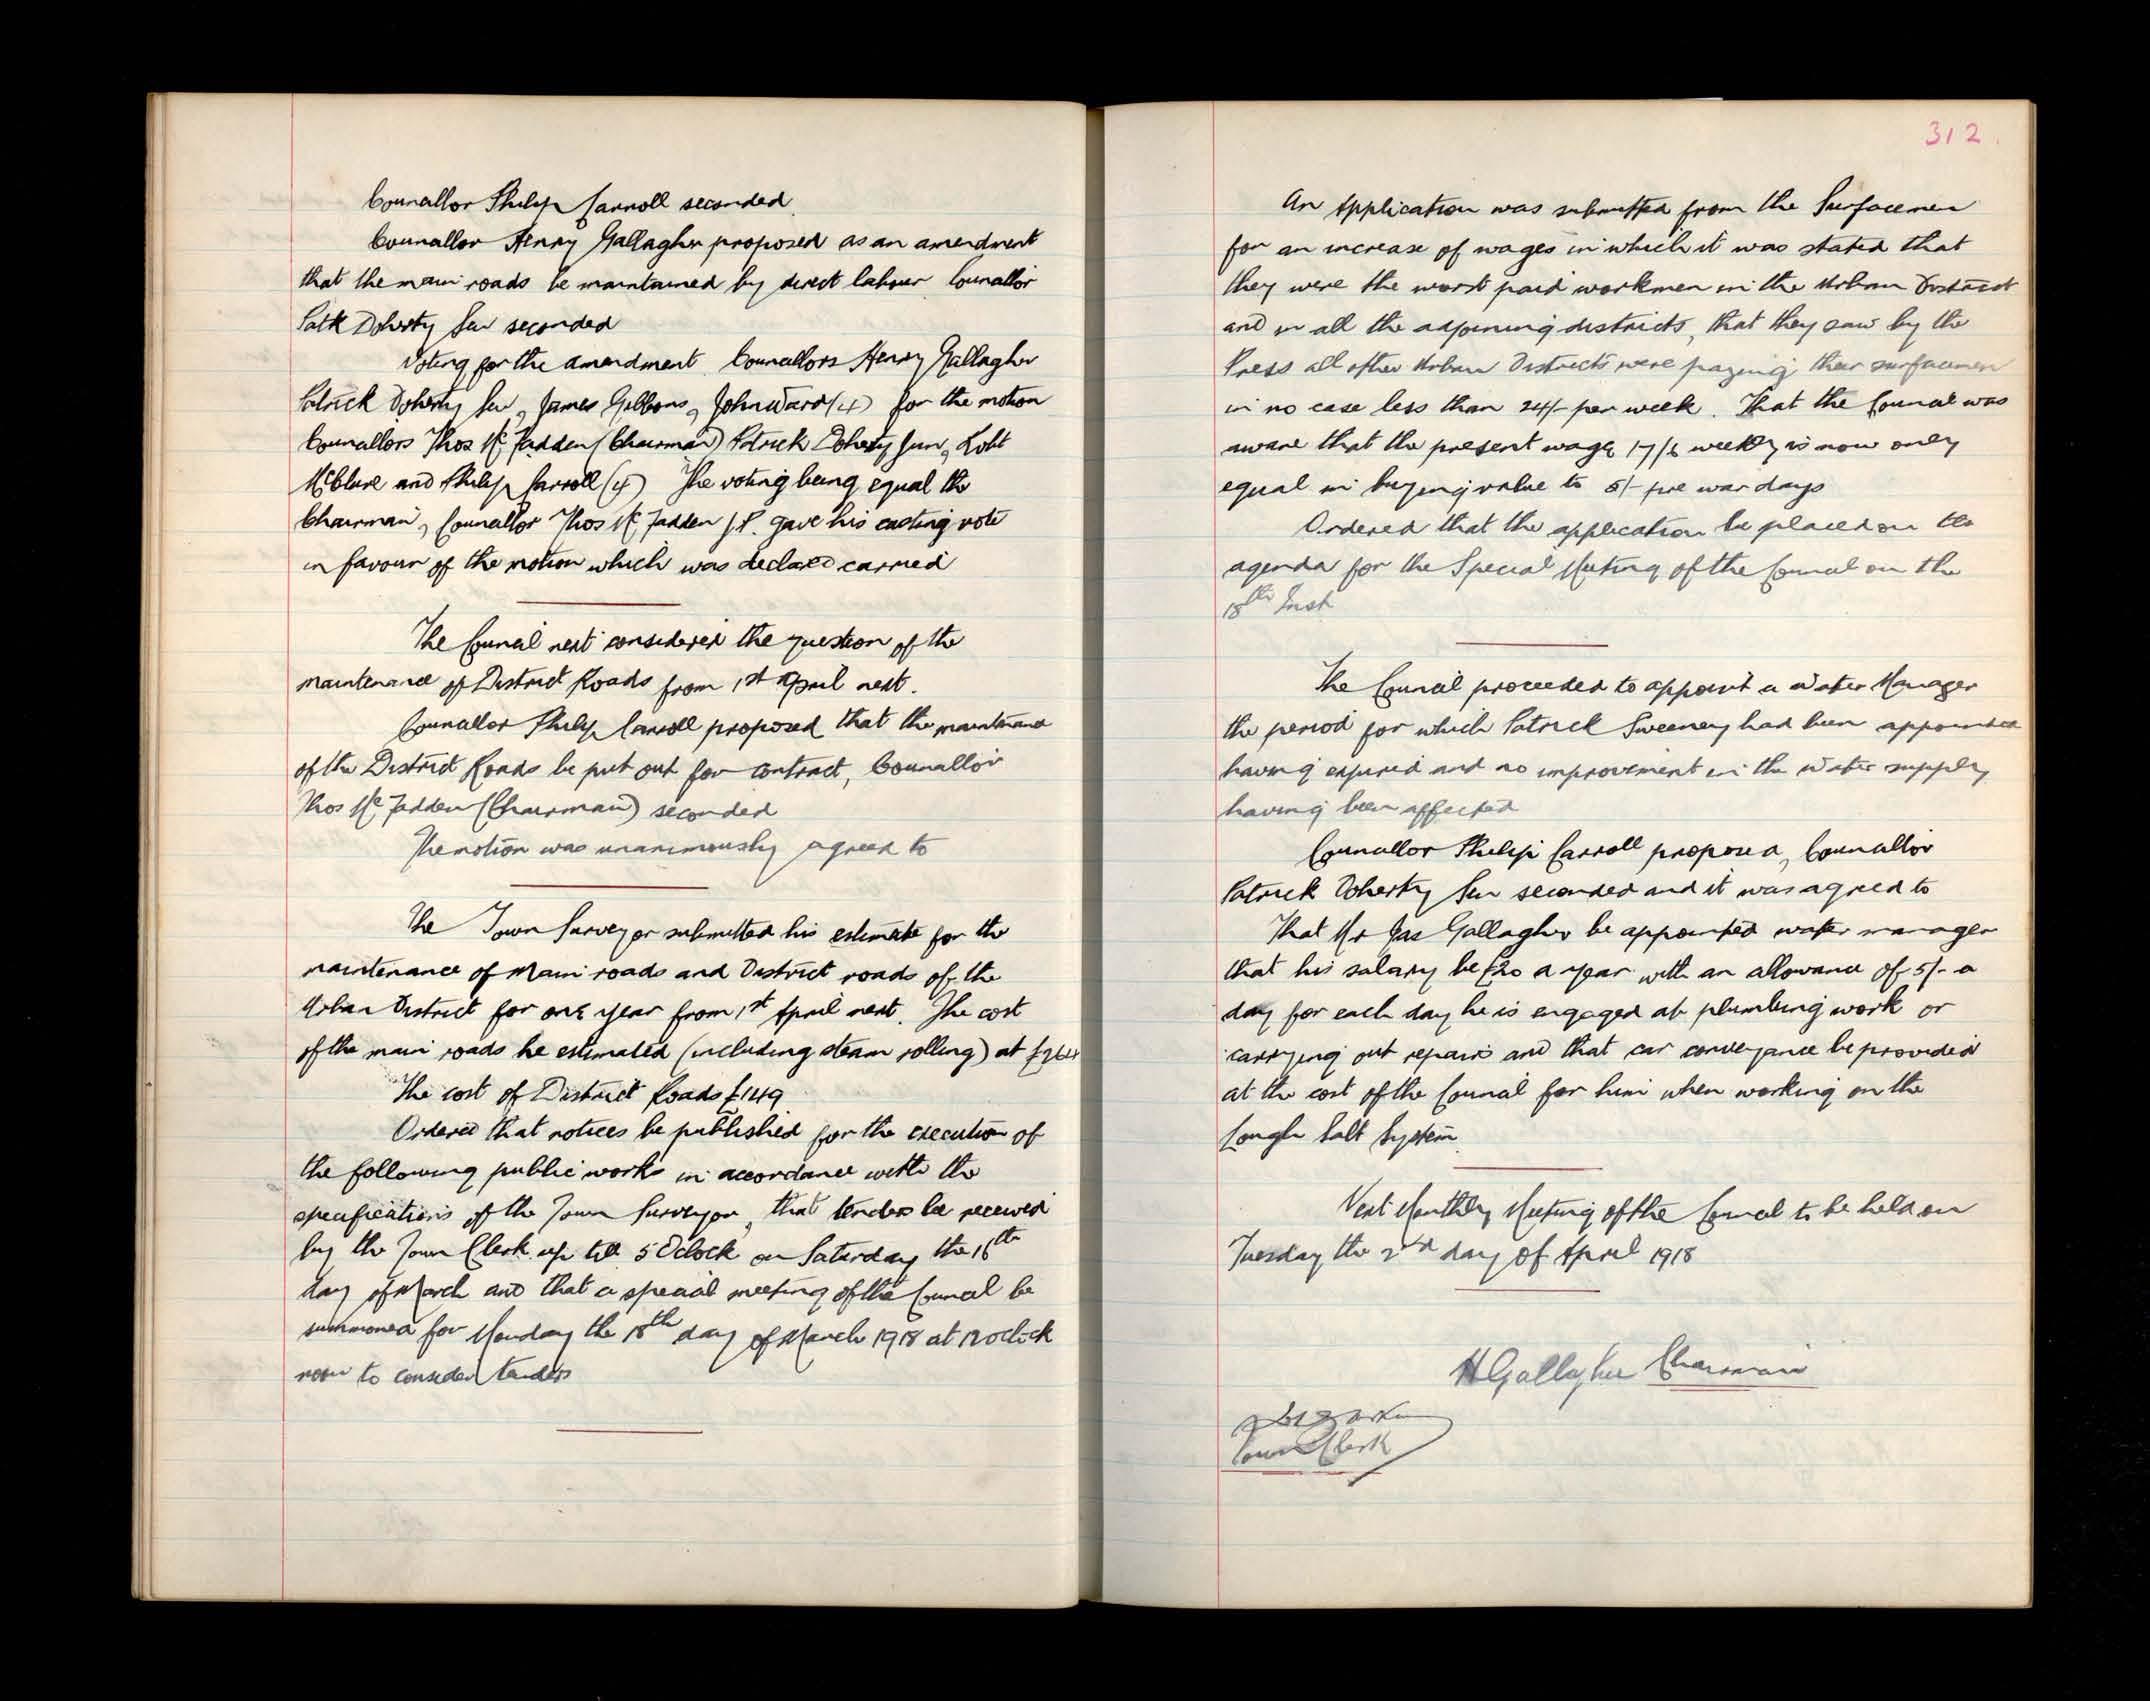 Councillor Philip Carroll seconded.
Councillor Henry Gallagher proposed as an amendment
that the main roads be maintained by direct labour Councillor
Patk Doherty Sen seconded
Voting for the amendment Councillors Henry Gallagher
Patrick Doherty Sen, James Gibbons, John Ward (4) for the motion
Councillors Thos Mc Fadden (Chairman) Patrick Doherty Jun, Robt
McClure and Philip Carroll (4) The voting being equal the
Chairman, Councillor Thos Mc Fadden J.P. gave his casting vote
in favour of the motion which was declared carried
The Council next considered the question of the
maintenance of District Roads from 1st April next.
Councillor Philip Carroll proposed that the maintenance
of the District Roads be put out for contract, Councillor
Thos Mc Fadden (Chairman) seconded
The motion was unanimously agreed to
The Town Surveyor submitted his estimate for the
maintenance of Main roads and District roads of the
Urban District for one year from 1st April next. The cost
of the main roads he estimated (including steam rolling) at
The cost of District Roads £149
Ordered that notices be published for the execution of
the following public works in accordance with the
specifications of the Town Surveyor, that tenders be received
by the Town Clerk up till 5 O'clock on Saturday the 16th
day of March and that a special meeting of the Council be
summoned for Monday the 18th day of March 1918 at 12 oclock
noon to consider tenders
312.
An Application was submitted from the Surfacemen
for an increase of wages in which it was stated that
they were the worst paid workmen in the Urban District
and in all the adjoining districts, that they saw by the
Press all other Urban Districts were paying their surfacemen
in no case less than 24/- per week. That the Council was
aware that the present wage 17/6 weekly is now only
equal in buying value to 8/- pre war days
Ordered that the application be placed on the
agenda for the Special Meeting of the Council on the
18th Inst
The Council proceeded to appoint a Water Manager
the period for which Patrick Sweeney had been appointed
having expired and no improvement in the water supply
having been affected
Councillor Philip Carroll proposed, Councillor
Patrick Doherty Sen seconded and it was agreed to
That Mr Jas Gallagher be appointed water manager
that his salary be £20 a year with an allowance of 5/- a
day for each day he is engaged at plumbing work or
carrying out repairs and that car conveyance be provided
at the cost of the Council for him when working on the
Lough Salt System.
Next Monthly Meeting of the Council to be held on
Tuesday the 2nd day of April 1918
H Gallagher Chairman
Town Clerk